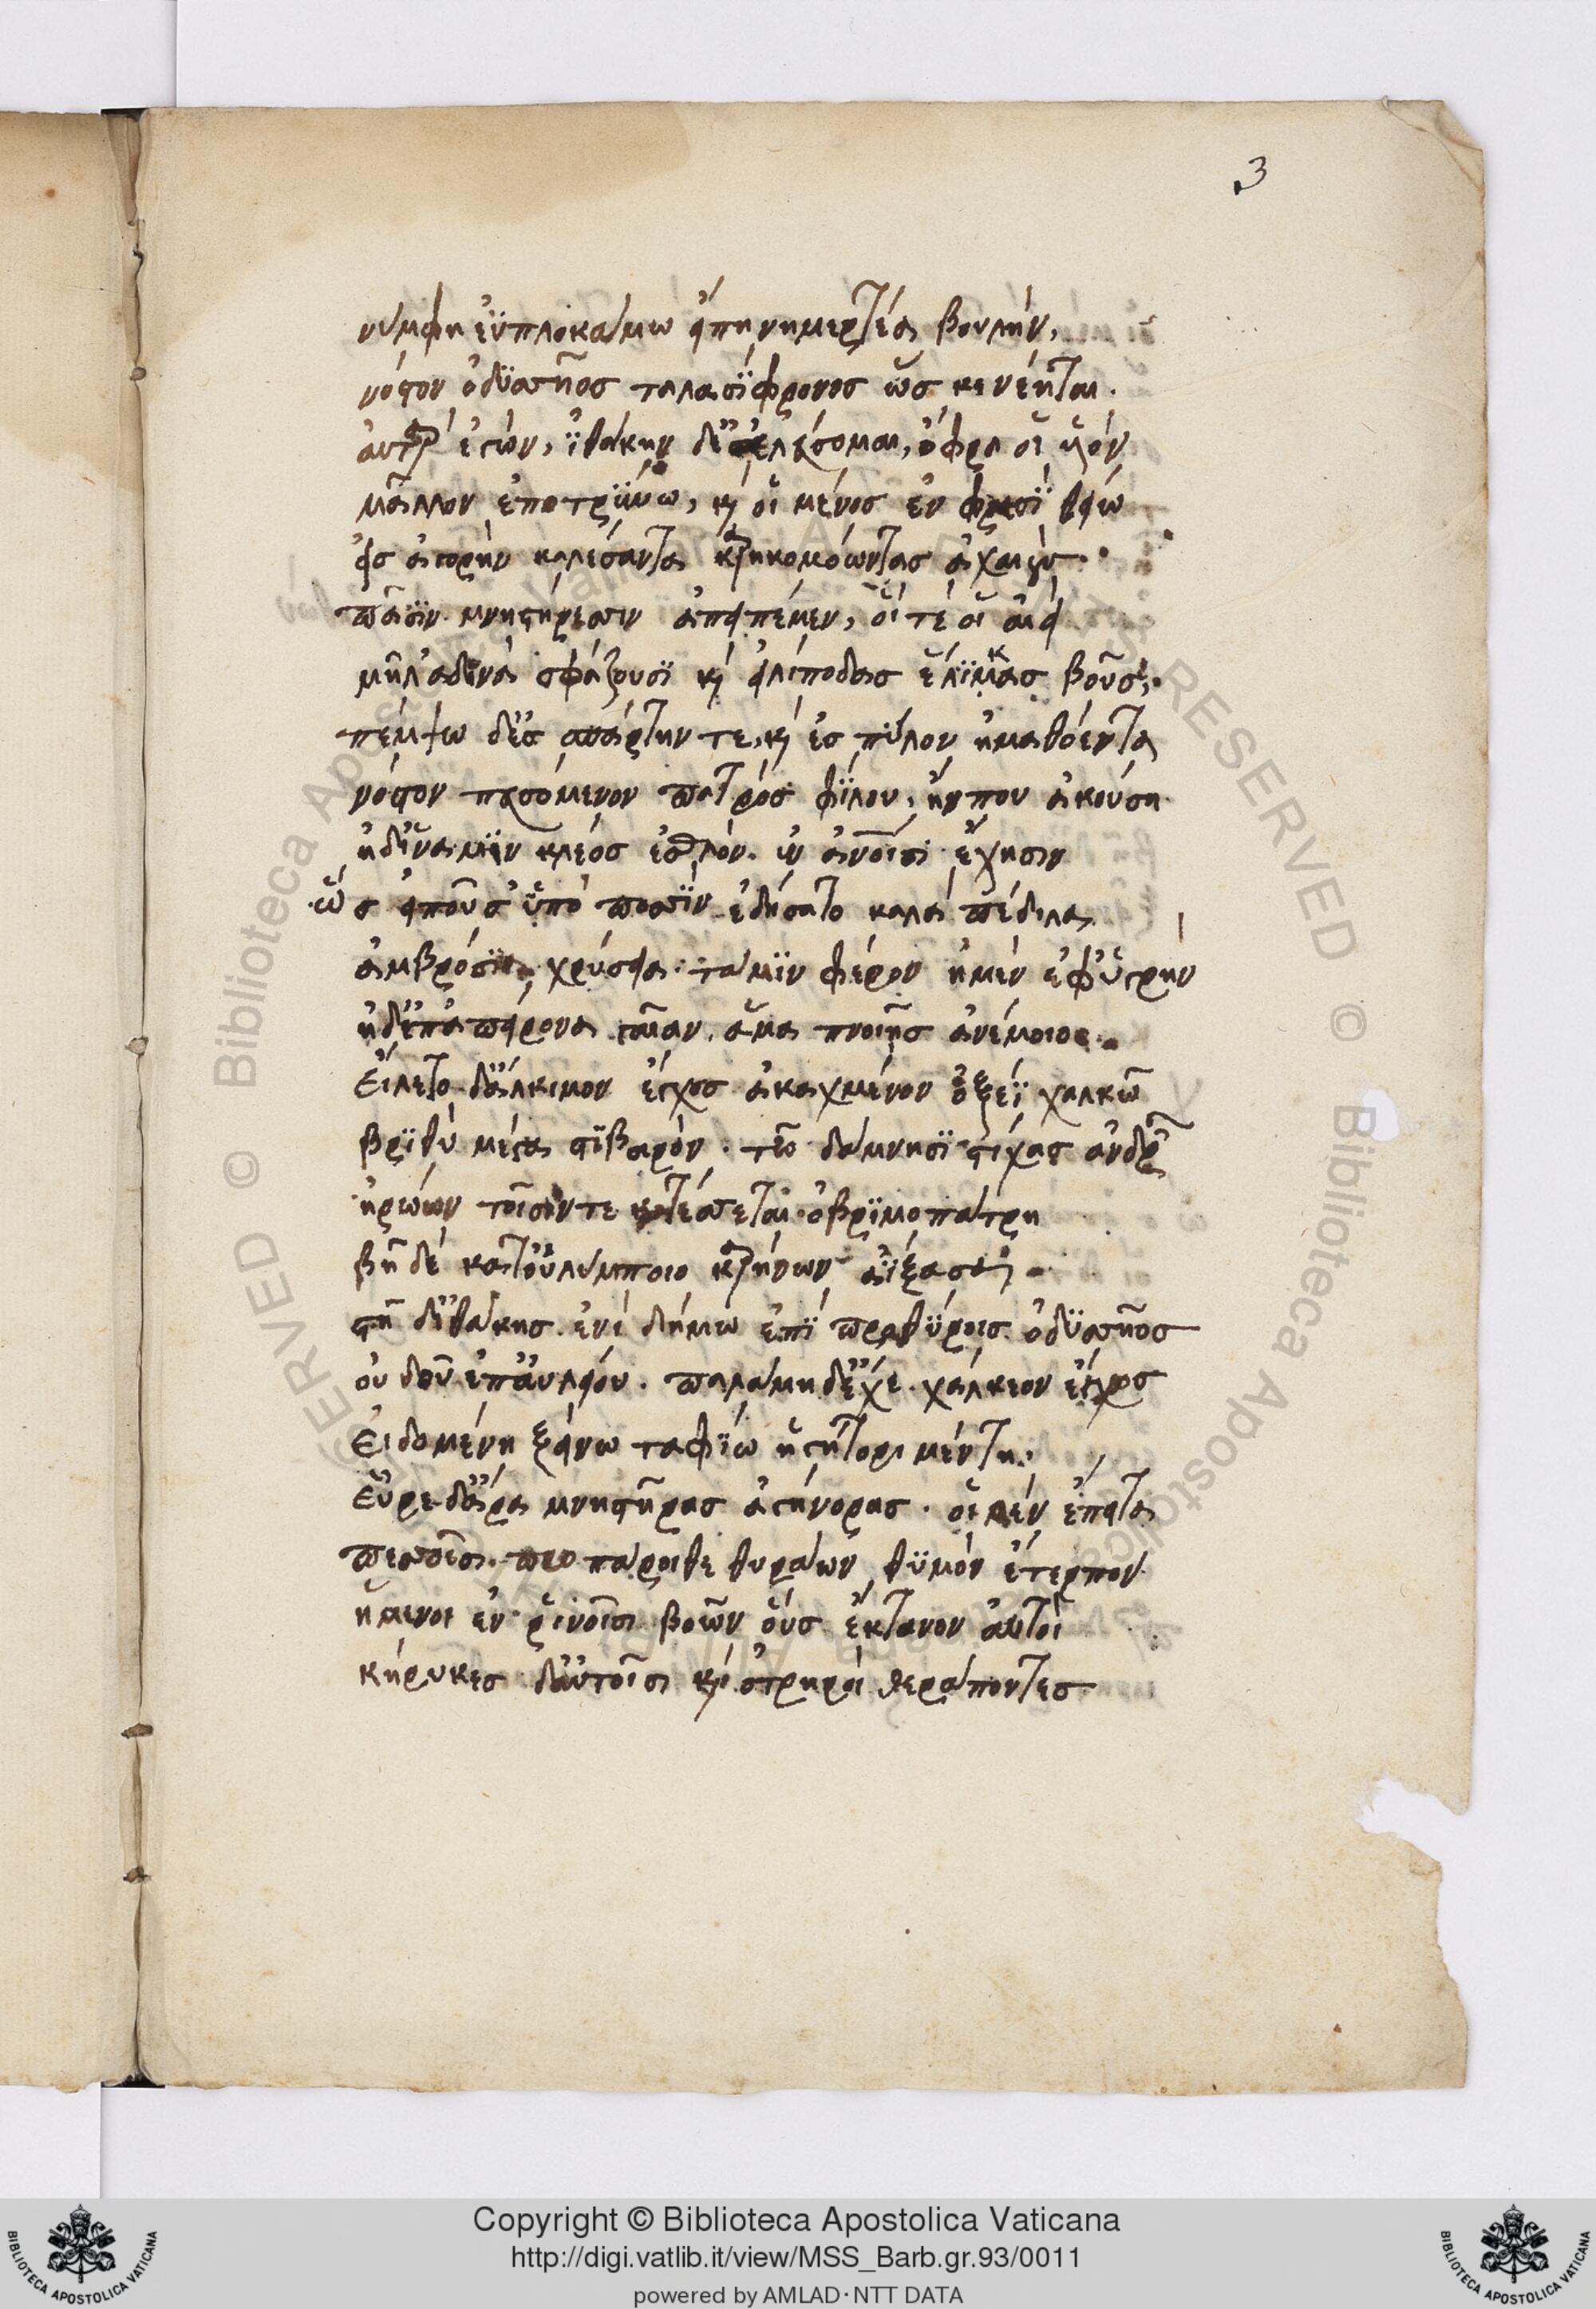 3
νύμφη ἐϋπλοκάμω εἴπη νημερτέα βουλήν,
νόστον ὀδϋσσῆος ταλασΐφρονος ὥς κε νέηται.
ἀυτὰρ ἐγὼν, ἰθάκην δ' ἐλεύσομαι, ὄφρα οἱ υἱὸν
μᾶλλον ἐποτρΰνω, καὶ οἱ μένος ἐν φρεσῒ θείω
εἰς ἀγορὴν καλέσαντα καρηκομόωντας ἀχαιούς.
πᾶσϊν μνηστήρεσσιν ἀπειπέμεν, οἵ τέ οἱ αἰεὶ
μῆλ' ἀδινὰ σφάζουσϊ καὶ εἰλίποδας ἕλϊκας βοῦς.
πέμψω δ' ἐς σπάρτην τε, καὶ ἐς πύλον ἠμαθόεντα
νόστον πευσόμενον πατρὸς φΐλου, ἤν που ἀκούση
ἠδ' ἵνα μϊν κλέος ἐσθλὸν ἐν ἀν̅οῖσι ἔχησιν
ὣς εἰποῦσ' ὑπὸ ποσσῒν ἐδήσατο καλὰ πέδιλα
ἀμβρόσϊα χρύσεια· τά μϊν φέρον ἠμὲν ἐφ' ὑγρὴν
ἠδ' ἐπ' ἀπείρονα γαῖαν, ἅμα πνοιῆς ἀνέμοιο.
Εἵλετο δ' ἄλκιμον ἔγχος ἀκαχμένον ὀξέϊ χαλκῶ
βρϊθὺ μέγα στϊβαρὸν. τῶ δάμνησϊ στίχας ἀνδρῶν
ἡρώων τοῖσίν τε κοτέσσεται ὀβρϊμοπάτρη
βῆ δὲ κατ' οὐλύμποιο καρήνων ἀΐξασα
στῆ δ' ἰθάκης ἐνὶ δήμω ἐπῒ προθΰροις ὀδϋσσῆος
οὐδοῦ ἐπ' ἀυλείου. παλάμη δ' ἔχε χάλκεον ἔγχος
Εἰδομένη ξείνω ταφΐω ἡγήτορι μέντη.
Εὗρε δ' ἄρα μνηστῆρας ἀγήνορας. οἱ μὲν ἔπειτα
πεσσοῖσι προπάροιθε θυράων θϋμὸν ἔτερπον
ἥμενοι ἐν ῥινοῖσι βοῶν οὓς ἔκτανον ἀυτοὶ
κήρυκες δ' ἀυτοῖσι καὶ ὀτρηροὶ θεράποντες
Copyright © Biblioteca Apostolica Vaticana
http://digi.vatlib.it/view/MSS_Barb.gr.93/0011
powered by AMLAD·NTT DATA